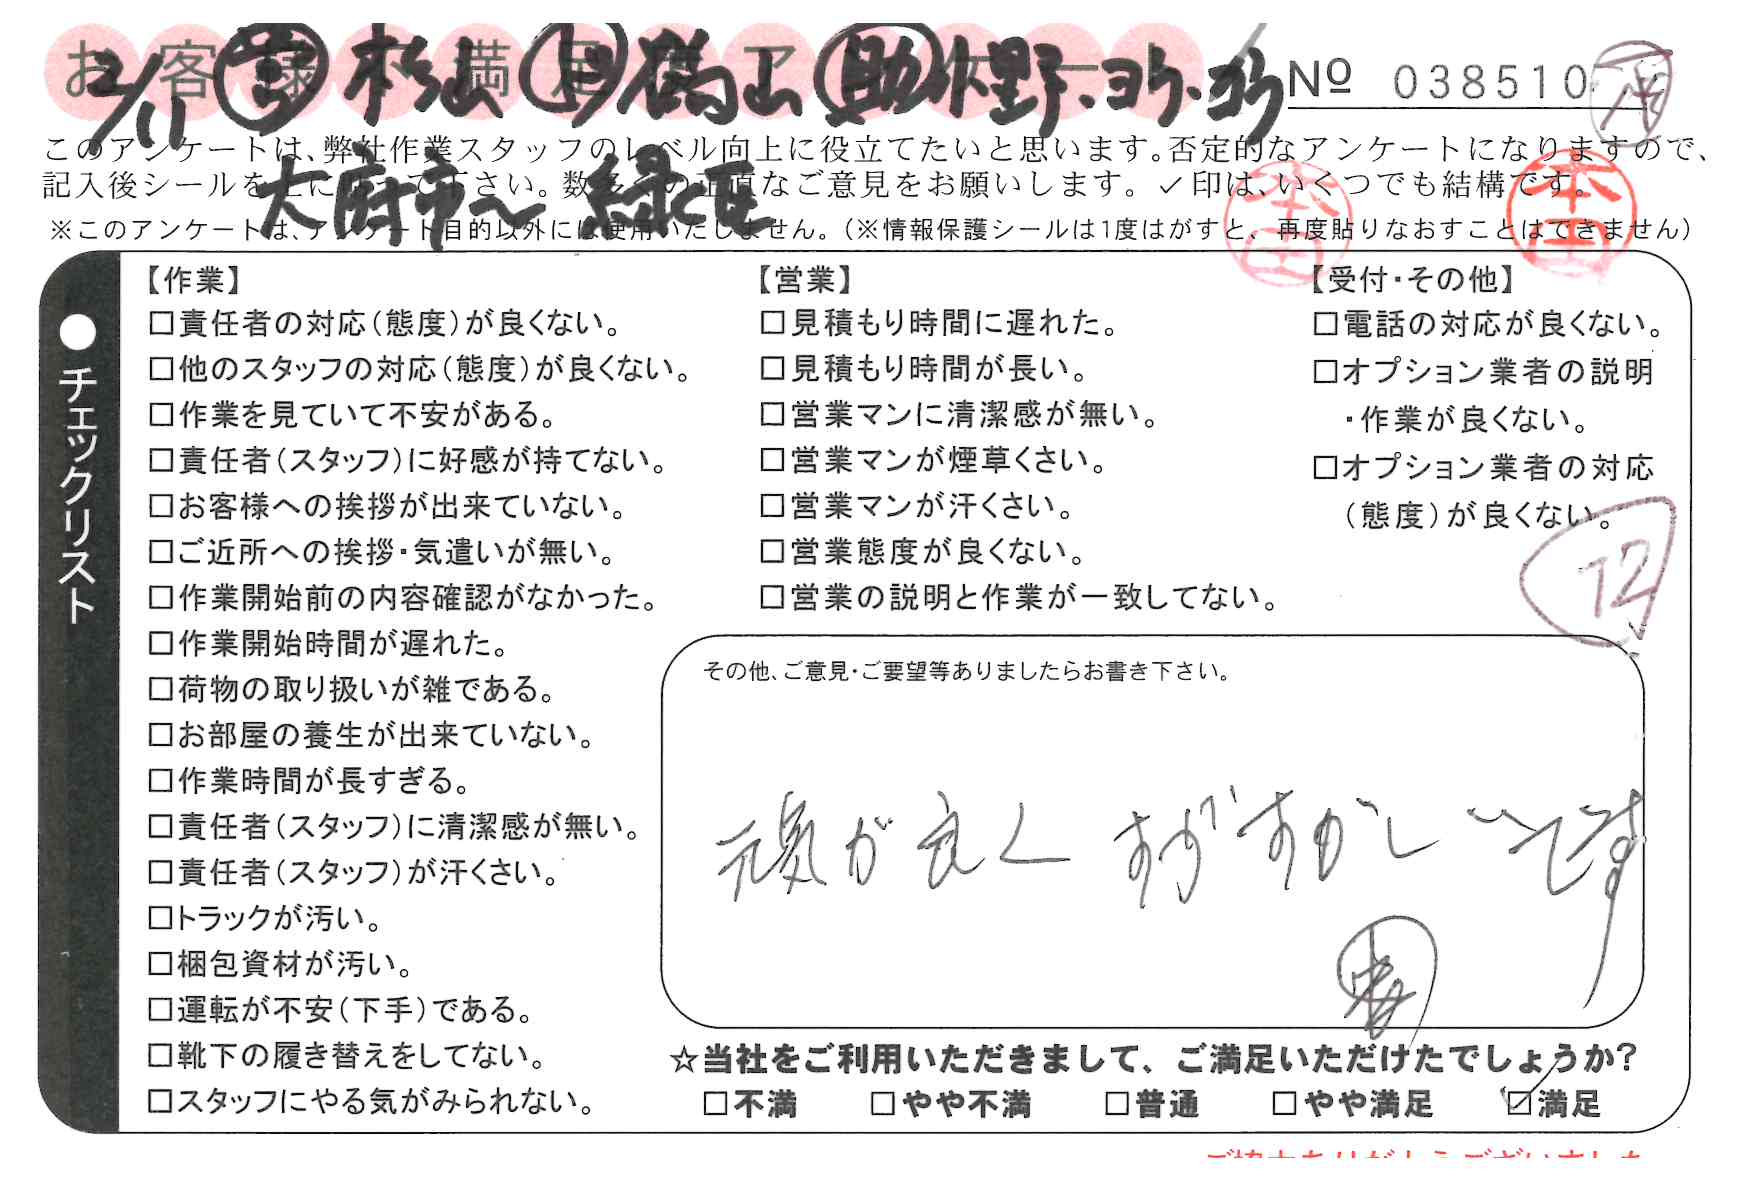 2/11
杉山
助
大府市〜緑区
No 038510
このアンケートは、弊社作業スタッフのレベル向上に役立てたいと思います。否定的なアンケートになりますので、
記入後シールを上に貼って下さい。数多くの正直なご意見をお願いします。✓印は、いくつでも結構です。
※このアンケートは、アンケート目的以外には使用いたしません。（※情報保護シールは1度はがすと、再度貼りなおすことはできません）
本田
本田
●チェックリスト
【作業】
□責任者の対応（態度）が良くない。
□他のスタッフの対応（態度）が良くない。
□作業を見ていて不安がある。
□責任者（スタッフ）に好感が持てない。
□お客様への挨拶が出来ていない。
□ご近所への挨拶・気遣いが無い。
□作業開始前の内容確認がなかった。
□作業開始時間が遅れた。
□荷物の取り扱いが雑である。
□お部屋の養生が出来ていない。
□作業時間が長すぎる。
□責任者（スタッフ）に清潔感が無い。
□責任者（スタッフ）が汗くさい。
□トラックが汚い。
□梱包資材が汚い。
□運転が不安（下手）である。
□靴下の履き替えをしてない。
□スタッフにやる気がみられない。
【営業】
□見積もり時間に遅れた。
□見積もり時間が長い。
□営業マンに清潔感が無い。
□営業マンが煙草くさい。
□営業マンが汗くさい。
□営業態度が良くない。
□営業の説明と作業が一致してない。
【受付・その他】
□電話の対応が良くない。
□オプション業者の説明
・作業が良くない。
□オプション業者の対応
（態度）が良くない。
12
その他、ご意見・ご要望等ありましたらお書き下さい。
元気が良く すがすがしいです
☆当社をご利用いただきまして、ご満足いただけたでしょうか？
□不満 □やや不満 □普通 □やや満足 ☑満足
ご協力ありがとうございました